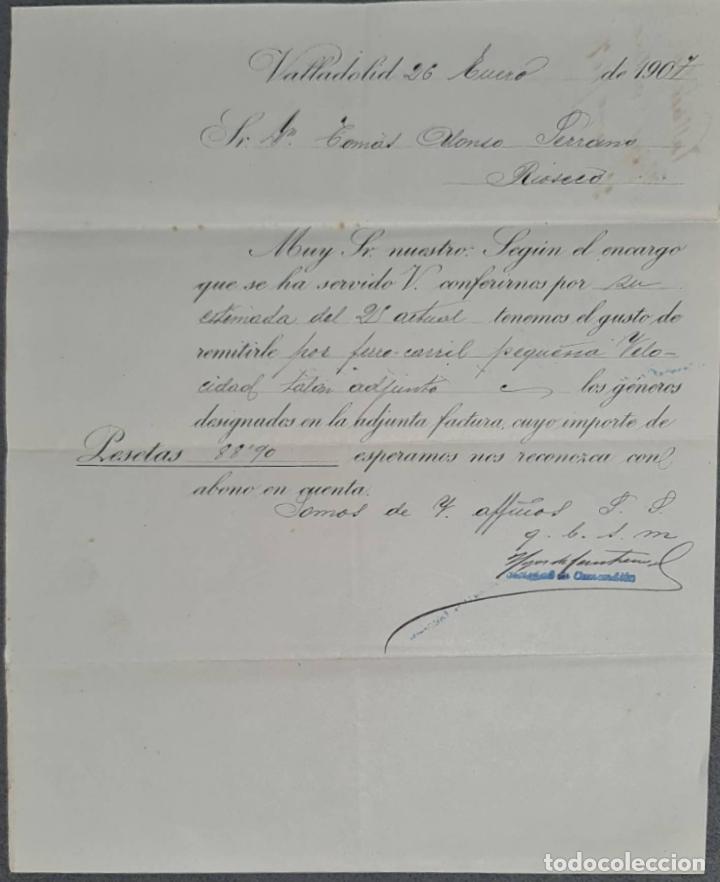 Valladolid 26 Enero de 1907
Sr. Dn. Tomás Alonso Serrano
Rioseco
Muy Sr. nuestro: Según el encargo
que se ha servido V. conferirnos por su
estimada del 21 actual tenemos el gusto de
remitirle por ferro-carril pequeña Velo-
cidad talón adjunto los géneros
designados en la adjunta factura, cuyo importe de
Pesetas 88'90 esperamos nos reconozca con
abono en cuenta.
Somos de V. affmos S. S.
q. b. s. m
Hijos de
Sociedad en Comandita
todocoleccion
todocoleccion.net